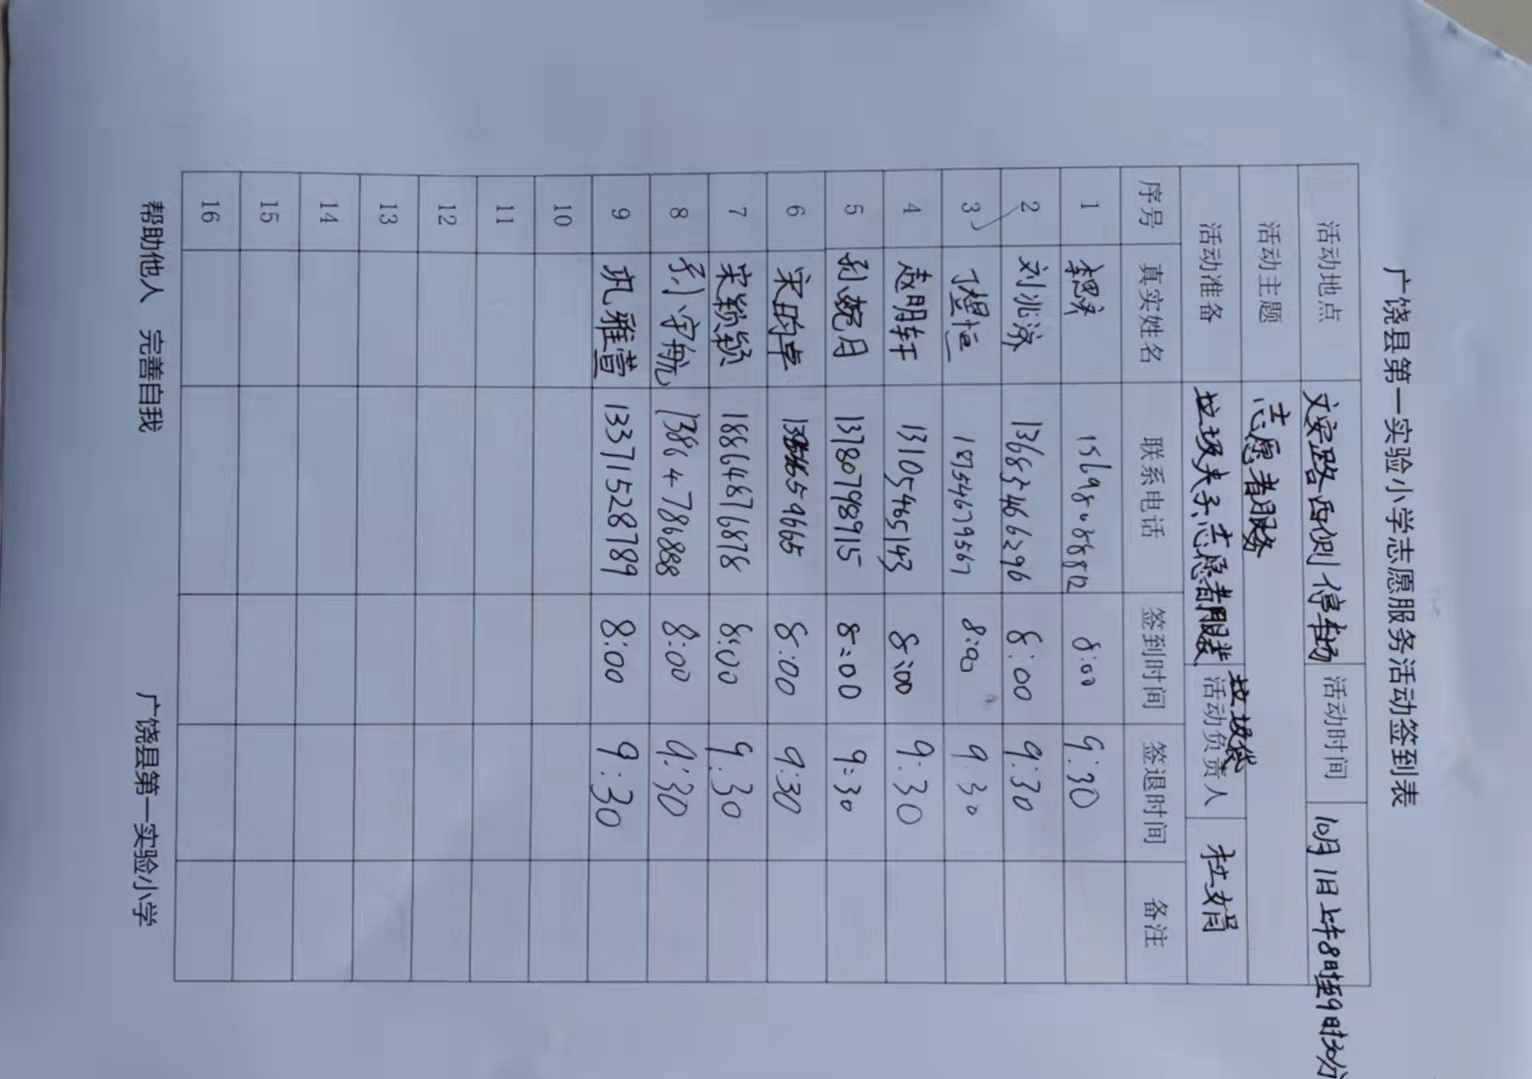 广饶县第一实验小学志愿服务活动签到表
活动地点 文安路西侧停车场 活动时间 10月1日上午8时至9时30分
活动主题 志愿者服务
活动准备 垃圾夹子、志愿者服装 垃圾袋 活动负责人 杜娟
序号 真实姓名 联系电话 签到时间 签退时间 备注
1 8:00 9:30
2 刘兆济 13685466296 8:00 9:30
3 18754679567 8:00 9:30
4 赵明轩 13105465143 8:00 9:30
5 孙婉月 13780798915 8:00 9:30
6 宋昀卓 8:00 9:30
7 宋颖颖 18864876878 8:00 9:30
8 守航 13864786888 8:00 9:30
9 巩雅萱 13371528789 8:00 9:30
10
11
12
13
14
15
16
帮助他人 完善自我 广饶县第一实验小学